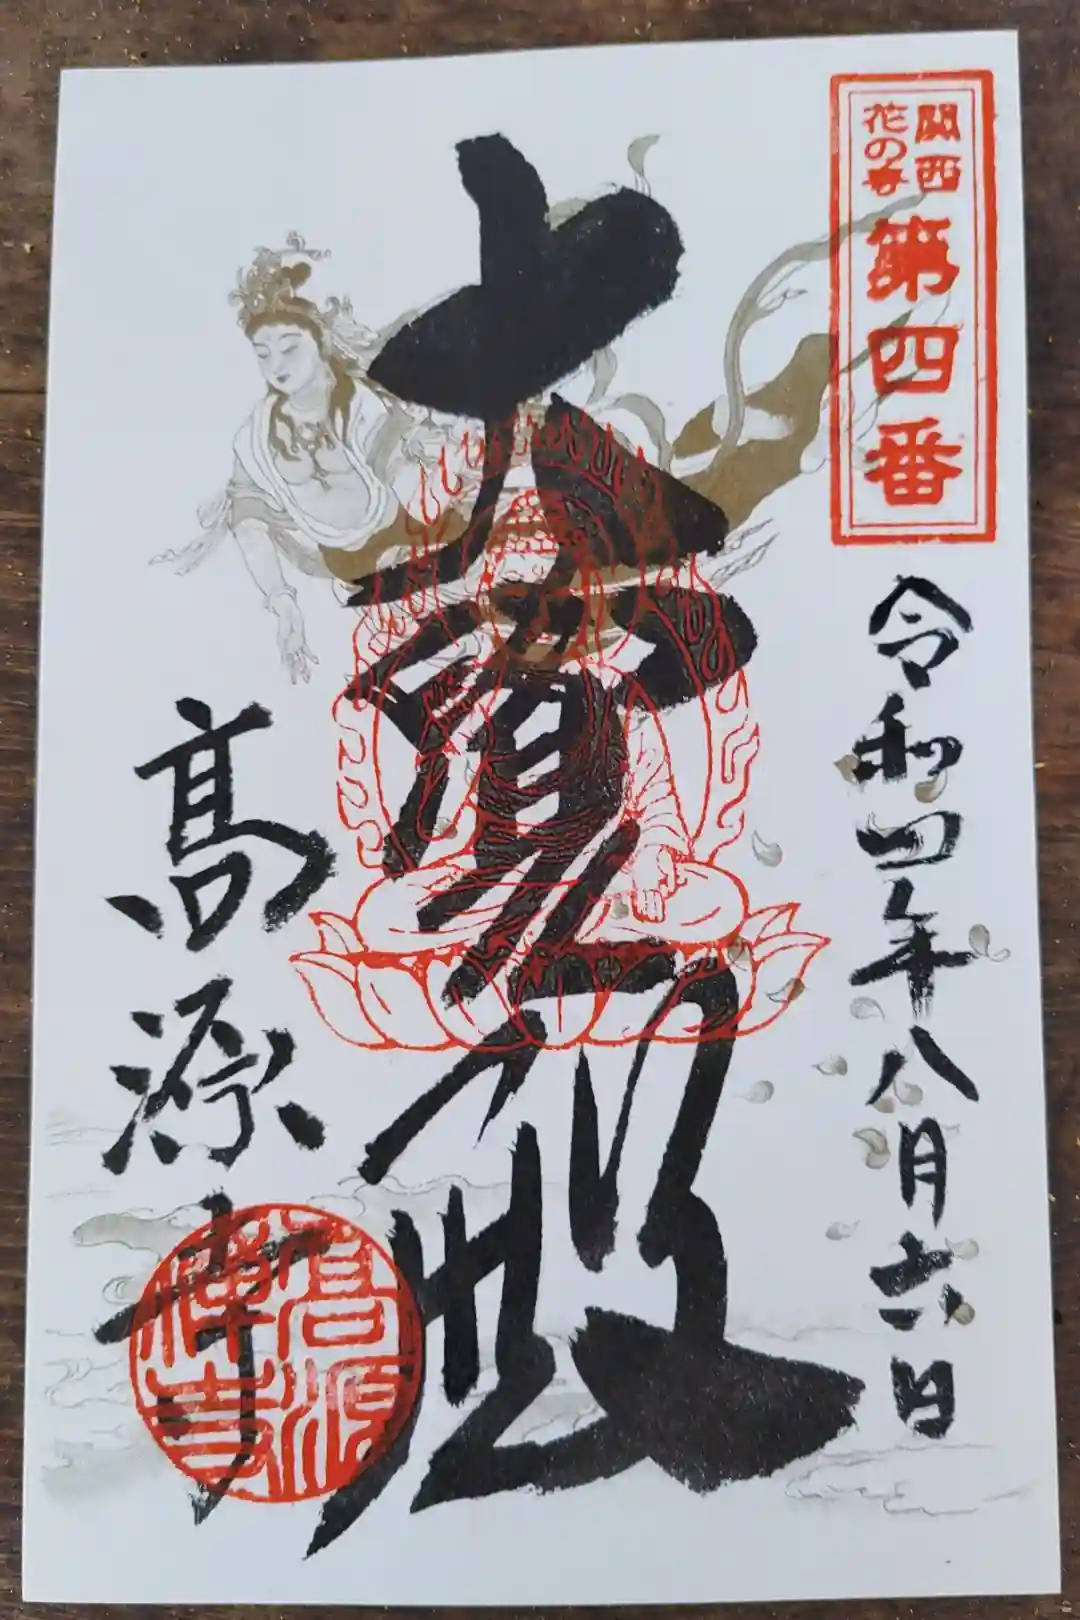 関西
花の寺
第四番
令和四年八月六日
大寳殿
高源寺
高源
禅寺